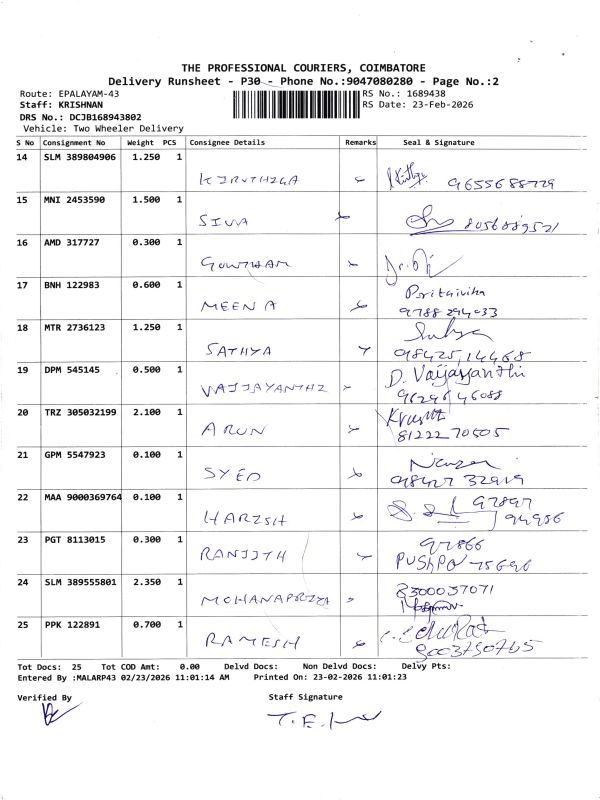 THE PROFESSIONAL COURIERS, COIMBATORE
Delivery Runsheet - P30 - Phone No.:9047080280 - Page No.:2
Route: EPALAYAM-43 RS No.: 1689438
Staff: KRISHNAN RS Date: 23-Feb-2026
DRS No.: DCJB168943802
Vehicle: Two Wheeler Delivery
S No Consignment No Weight PCS Consignee Details Remarks Seal & Signature
14 SLM 389804906 1.250 1
KIRUTHIGA 9655688729
15 MNI 2453590 1.500 1
SIVA 8056889521
16 AMD 317727 0.300 1
GOWTHAM
17 BNH 122983 0.600 1
MEENA Prithivika
9788294033
18 MTR 2736123 1.250 1
SATHYA Sathya
98425,14468
19 DPM 545145 0.500 1
VAIJJAYANTHI D. Vaijayanthi
96296 46088
20 TRZ 305032199 2.100 1
ARUN
81222 70505
21 GPM 5547923 0.100 1
SYED
98427 32919
22 MAA 9000369764 0.100 1
HARISH 97897
94986
23 PGT 8113015 0.300 1
RANJITH 97866
PUSHPA 75696
24 SLM 389555801 2.350 1
MOHANAPRIYA 8300037071
25 PPK 122891 0.700 1
RAMESH
9003750765
Tot Docs: 25 Tot COD Amt: 0.00 Delvd Docs: Non Delvd Docs: Delvy Pts:
Entered By :MALARP43 02/23/2026 11:01:14 AM Printed On: 23-02-2026 11:01:23
Verified By Staff Signature